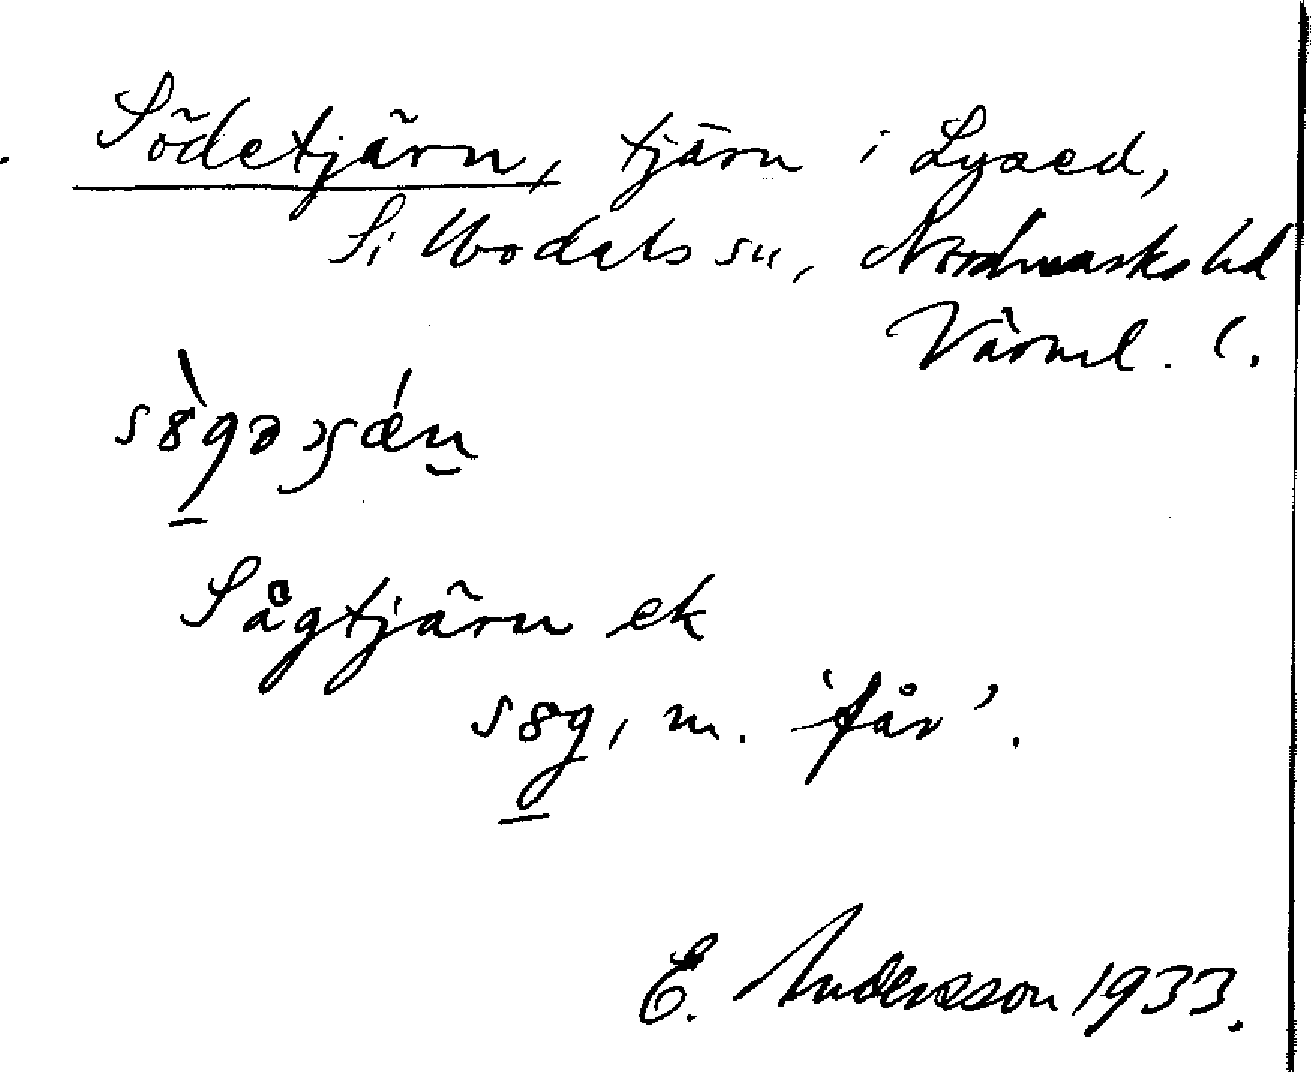 Södetjärn, tjärn i Lysed,
Silbodals sn, Nordmarks hd
Värml. l.
Sågtjärn ek
m. 'får'.
E. Andersson 1933.